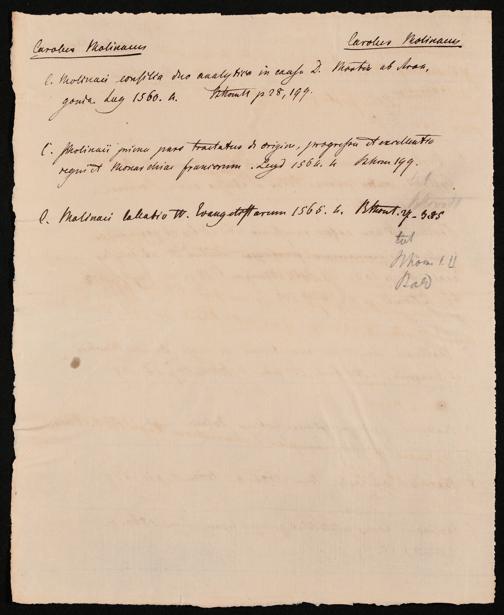 Carolus Molinaeus Carolus Molinaeus
C. Molinaei consilia duo analytica in causa D. ab Aran,
gonia Lug 1560. 4. p 28, 199.
C. Molinaei prima pars tractatus de origine, progressu et excellentia
regni et Monarchiae francorum. Lugd 1564. 4. 199.
C. Molinaei collatio IV. Evangelistarum 1565. 4. 385